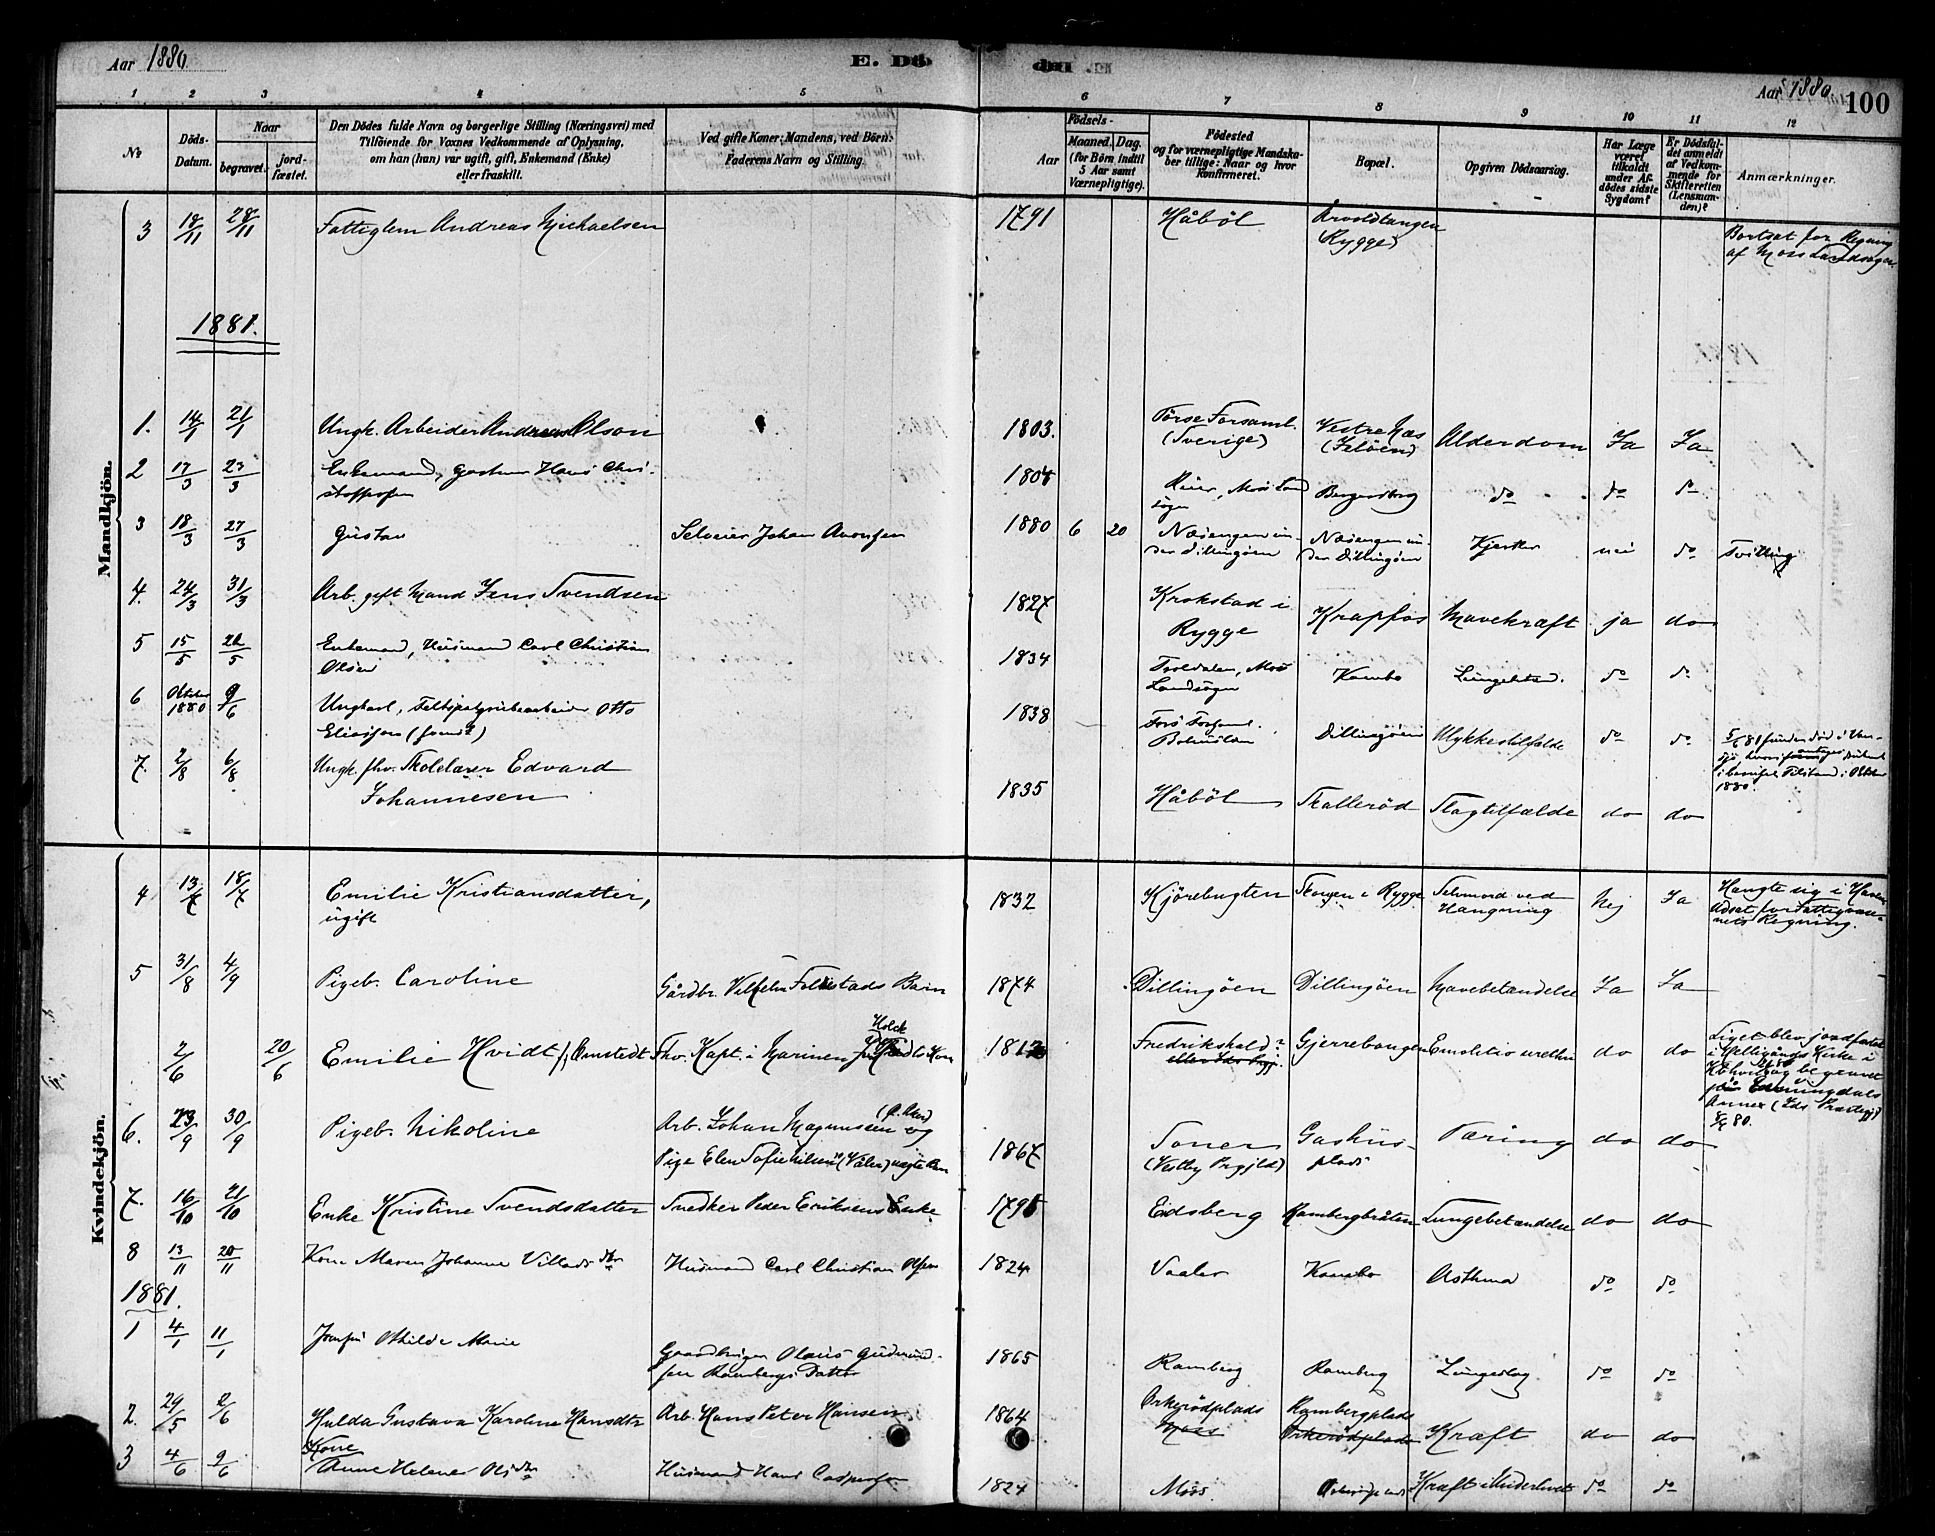 Aar 1880. E. Dö den. Aar 1880. 100
1 2 3 4 5 6 7 8 9 10 11 12
№ Döds-Datum. Naar begravet. jord-fæstet. Den Dödes fulde Navn og borgerlige Stilling (Næringsvei) med Tilföiende for Voxnes Vedkommende af Oplysning, om han (hun) var ugift, gift, Enkemand (Enke) eller fraskilt. Ved gifte Koner: Mandens, ved Börn: Faderens Navn og Stilling. Aar Födsels- Maaned. Dag. (for Börn indtil 5 Aar samt Værnepligtige). Födested og for værnepligtige Mandskaber tillige: Naar og hvor Konfirmeret. Bopæl. Opgiven Dödsaarsag. Har Læge været tilkaldt under Afdödes sidste Sygdom? Er Dödsfaldet anmeldt af Vedkommende for Skifteretten (Lensmanden)? Anmærkninger.
Mandkjön.
3 18/11 28/11 Fattiglem Andreas Michaelsen 1791 Håböl Årvoldtangen Rygge) Bortsat for Regning af Moss Landsogn
1881.
1. 14/1 21/1 Ungk. Arbeider Andreas Olson 1803. Törse Forsaml. (Sverige) Vestre Næs (Jelöen) Alderdom Ja Ja
2 17/3 23/3 Enkemand, Hans Christoffersen 1804 Moss Landsogn Bergersborg do do do
3 18/3 27/3 Gustav Selveier Johan 1880 6 20 Næsengen under Dillingöen Næsengen under Dillingöen nei do Tvilling
4. 24/3 31/3 Arb. gift Mand Jens Svendsen 1827 Krokstad i Rygge Krapfos Mavekræft ja do
5 15/5 20/5 Enkemand, Husmand Carl Christian Olsen 1834 Landsogn Kambo do do
6 Oktober 1880 9/6 Ungkarl, Feltspatgrubearbeider Otto 1838 Dillingöen Ulykkestilfælde do do 5/6 81 funden död i Vansjö, i Oktober 1880.
7. 2/8 6/8 Ungk. fhv. Skolelærer Edvard Johannesen 1835 Håböl Skalleröd Slagtilfælde do do
Kvindekjön.
4 13/7 18/7 Emilie Kristiansdatter, ugift 1832 Kjörebugten Skogen i Rygge Selvmord ved Hængning Nej Ja Hængte sig i Haven Udsat for Fattigvæsenets Regning.
5 31/8 4/9 Pigeb. Caroline Gårdbr. Vilhelm Folkestads Barn 1874 Dillingöen Dillingöen Mavebetændelse Ja Ja
2/6 20/6 Emilie Hvidt f. Omstedt Fhv. Kapt. i Marinen Holck Kone 1812 Fredrikshald? eller Ids Prgj. Gjerrebogen do do Liget blev jordfæstet i Helligånds Kirke i Kbhvn og begravet Enningdals Annex (Ids Præstegj) 80.
6. 23/9 30/9 Pigeb. Nikoline Arb. Johan Magnussen og Pige Elen Sofie Nilsen (Våler) uægte Barn 1867 Soner (Vestby Prgjld) Gashusplads Tæring do do
7. 16/10 21/10 Enke Kristine Svendsdatter Snedker Peder Eriksens Enke 1795 Eidsberg Rambergbråten Lungebetændelse do do
8 13/11 20/11 Kone Maren Johanne Villads dtr Husmand Carl Christian Olsen 1824 Vaaler Kambo Asthma do do
1881.
1 4/1 11/1 Josefin Othilde Marie Gaardbruger Olaus Gudmundsen Rambergs Datter 1865 Ramberg Ramberg Lungeslag do do
2. 29/5 2/6 Hulda Gustava Karoline Hansdtr Arb. Hans Peter Hansen 1864 Orkerödplads Moss Rambergplads Orkerödplads Kræft do do
3 4/6 9/6 Kone Anne Helene Ols dtr Husmand Hans Caspersen 1824 Moss. Kræft i Underlivet do do